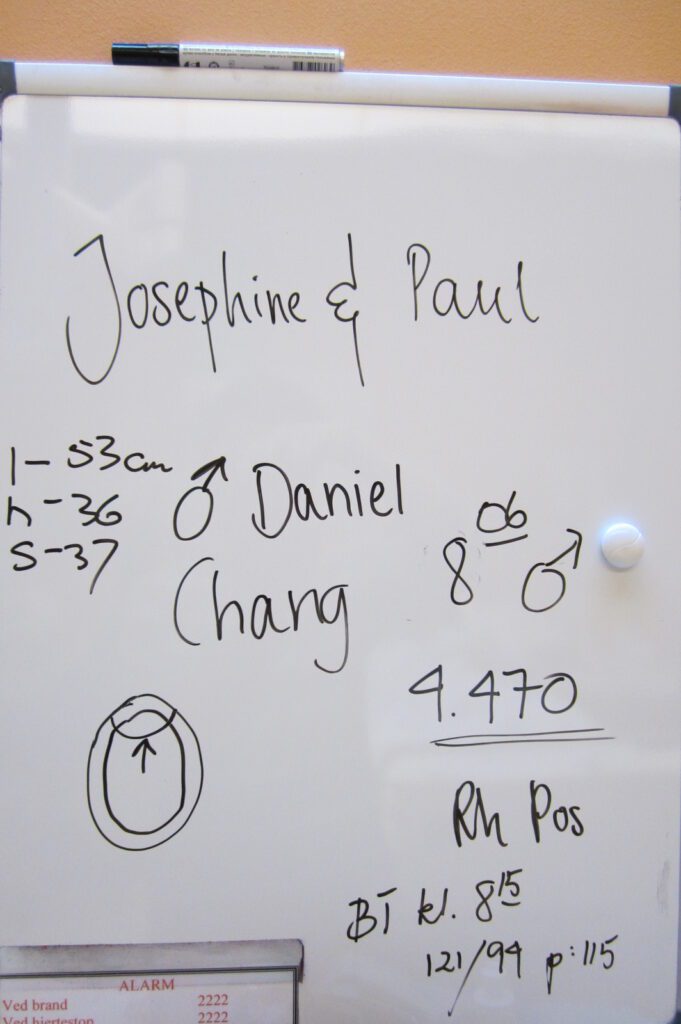 Josephine & Paul
l - 53 cm
h - 36
S - 37
♂ Daniel
Chang
8 06 ♂
4.470
Rh Pos
BT kl. 8 15
121/94 p: 115
ALARM
Ved brand 2222
Ved hjertestop 2222